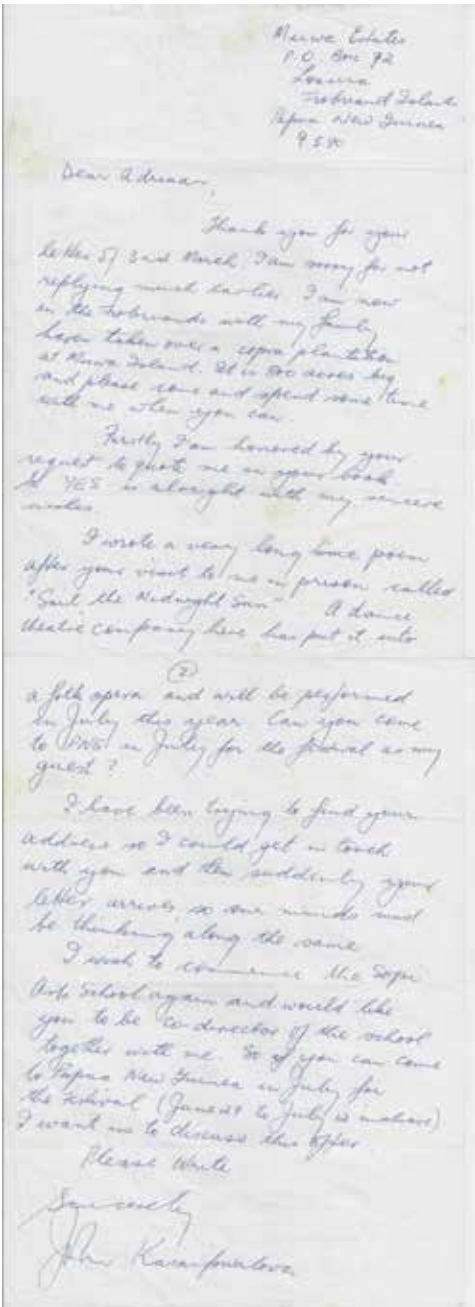 Muwa Estates
P.O. Box 92
Losuia
Trobriand Islands
Papua New Guinea
Dear Adriaan,
Thank you for your
letter of 3rd March. I am sorry for not
replying much earlier. I am now
in the Trobriands with my family
have taken over a copra plantation
at Muwa Island. It is 800 acres big
and please come and spend some time
with me when you can.
Firstly I am honored by your
request to quote me in your book
YES is alright with my sincere
I wrote a very long time poem
after your visit to me in prison called
"Sail the Midnight Sun" A dance
theatre company here has put it into
(2)
a folk opera and will be performed
in July this year Can you come
to PNG in July for the festival as my
guest?
I have been trying to find your
address so I could get in touch
with you and then suddenly your
letter arrives, so our minds must
be thinking along the same
I wish to commence the Sopi
Arts School again and would like
you to be co-director of the school
together with me. So if you can come
to Papua New Guinea in July for
the festival (June to July
I want us to discuss this offer
Please Write
Sincerely
John Kasaipwalova